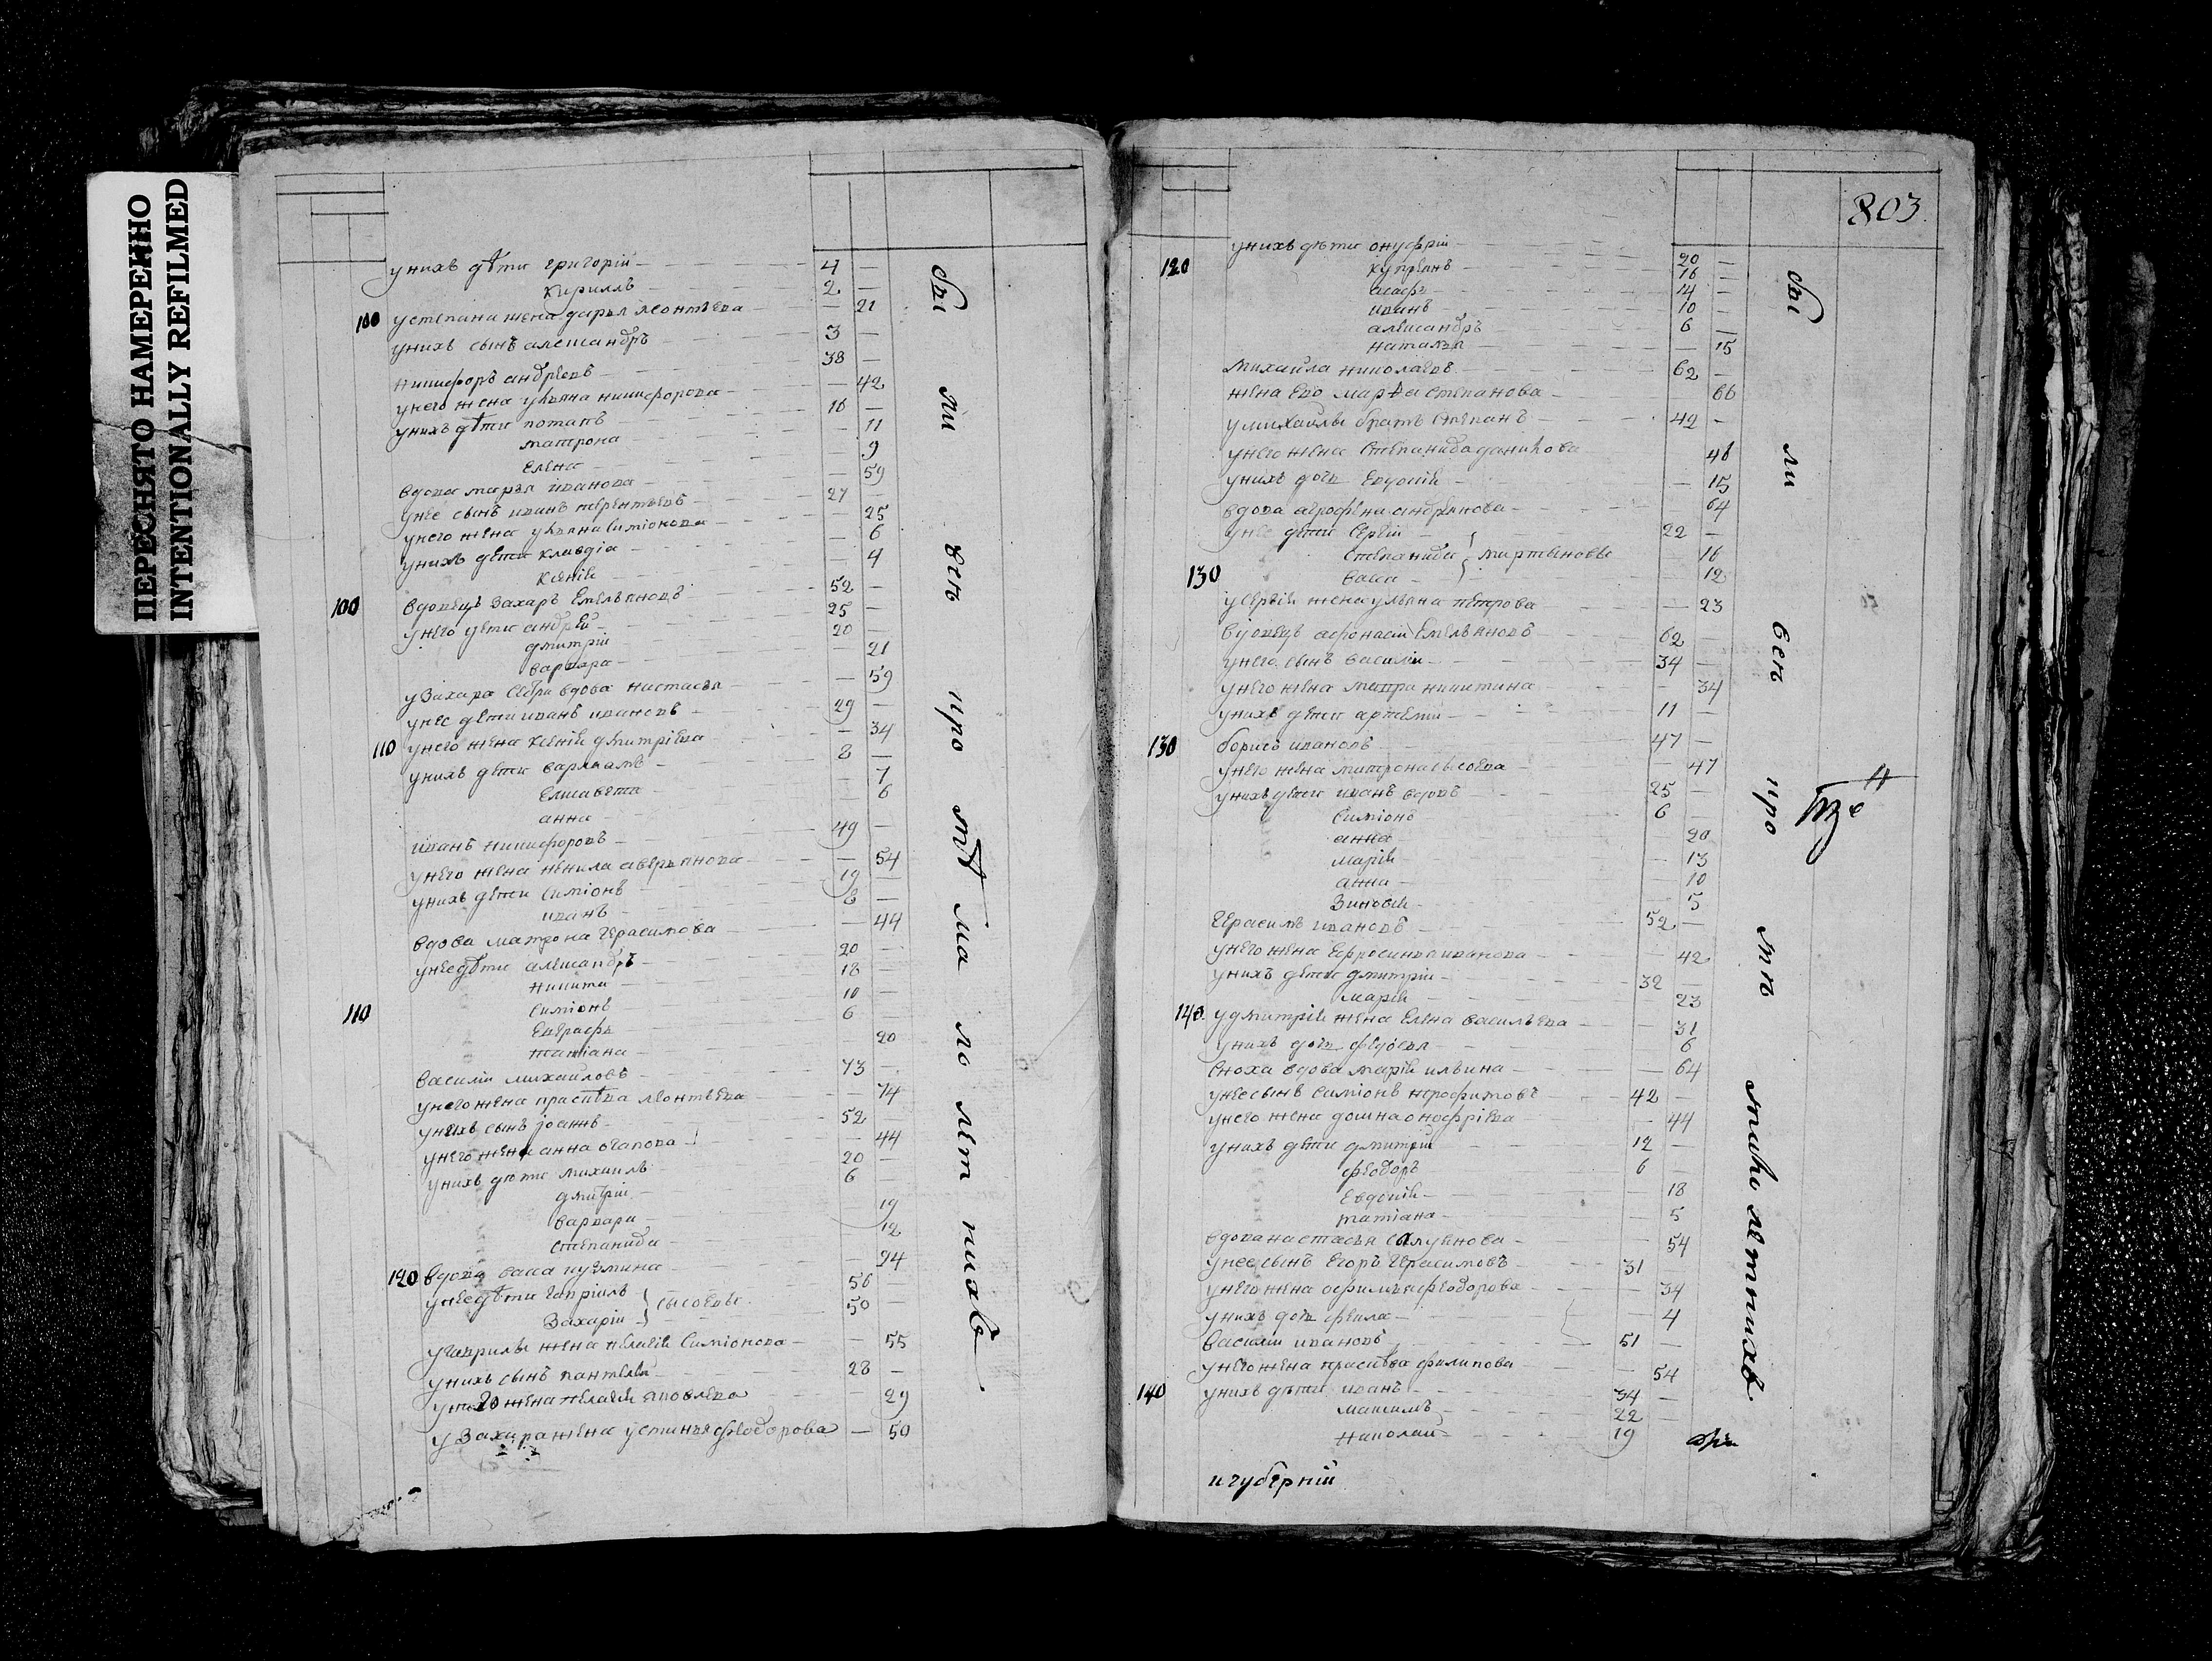 ПЕРЕСНЯТО НАМЕРЕННО
INTENTIONALLY REFILMED
у нихъ дѣти григорій — 4 —
кириллъ — 2 —
100 у степана жена дарья леонтьева — 21
у нихъ сынъ александръ — 3 —
никифоръ андреевъ — 38 —
у него жена ульяна никифорова — 42
у нихъ дѣти потапъ — 16 —
матрона — 11
елена — 9
вдова марья иванова — 59
у нее сынъ иванъ терентьевъ — 27 —
у него жена ульяна симіонова — 25
у нихъ дети клавдіа — 6
ксенія — 4
100 вдовецъ захаръ емельяновъ — 52 —
у него дети андрей — 25 —
дмитрій — 20 —
варвара — 21
у захара сестра вдова настасья — 59
у нее дети иванъ ивановъ — 29 —
110 у него жена ксенія дмитріева — 34
у нихъ дети варлаамъ — 8 —
елисавета — 7
анна — 6
иванъ никифоровъ — 49 —
у него жена ненила аверьянова — 54
у нихъ дети симіонъ — 19 —
иванъ — 8 —
вдова матрона герасимова — 44
у нее дѣти александръ — 20 —
никита — 18 —
110 симіонъ — 10 —
евграфъ — 6 —
татіана — 20
василій михайловъ — 73 —
у него жена прасковья леонтьева — 74
у нихъ сынъ іоаннъ — 52
у него жена анна — 44
у нихъ дети михаилъ — 20 —
дмитрій — 6
варвара — 19
степанида — 12
120 вдова васа кузмина — 94
у нее дѣти гавріилъ } сысоевы — 56
захарій } — 50
у гаврилы жена пелагія симіонова — 55
у нихъ сынъ пантелей — 28 —
у него жена пелагія яковлева — 29
у захара жена устинья феодорова — 50
были вси при той исполетникахъ
803
у нихъ дѣти онуфрій — 20 —
120 купреянъ — 16 —
асафъ — 14 —
иванъ — 10 —
александръ — 6 —
наталья — 15
михайла николаевъ — 62 —
жена ево марфа степанова — 66
у михайлы братъ степанъ — 42 —
у него жена степанида данилова — 46
у нихъ дочь евдокія — 15
вдова агрофена андреянова — 64
у нее дети сергій } — 22 —
степанида } мартыновы — 16
130 васса } — 12
у сергія жена ульяна петрова — 23
вдовецъ афонасій емельяновъ — 62 —
у него сынъ василій — 34 —
у него жена мавра никитина — 34
у нихъ дети артемій — 11 —
130 борисъ ивановъ — 47 —
у него жена матрона сысоева — 47
у нихъ дети иванъ вдовъ — 25 —
симіонъ — 6 —
анна — 20
марія — 13
анна — 10
зиновія — 5
герасимъ ивановъ — 52 —
у него жена ефросинья иванова — 42
у нихъ дети дмитрій — 32 —
марія — 23
140 у дмитрія жена елена васильева — 31
у нихъ дочь федосья — 6
сноха вдова марія ильина — 64
у нее сынъ симіонъ трофимовъ — 42 —
у него жена домна онофріева — 44
у нихъ дети дмитрій — 12 —
феодоръ — 6 —
евдокія — 18
татіана — 5
вдова настасья — 54
у нее сынъ егоръ герасимовъ — 31
у него жена афимья феодорова — 34
у нихъ дочь фекла — 4
василій ивановъ — 51 —
у него жена прасковья филипова — 54
140 у нихъ дети иванъ — 34 —
максимъ — 22 —
николай — 19
и губерніи